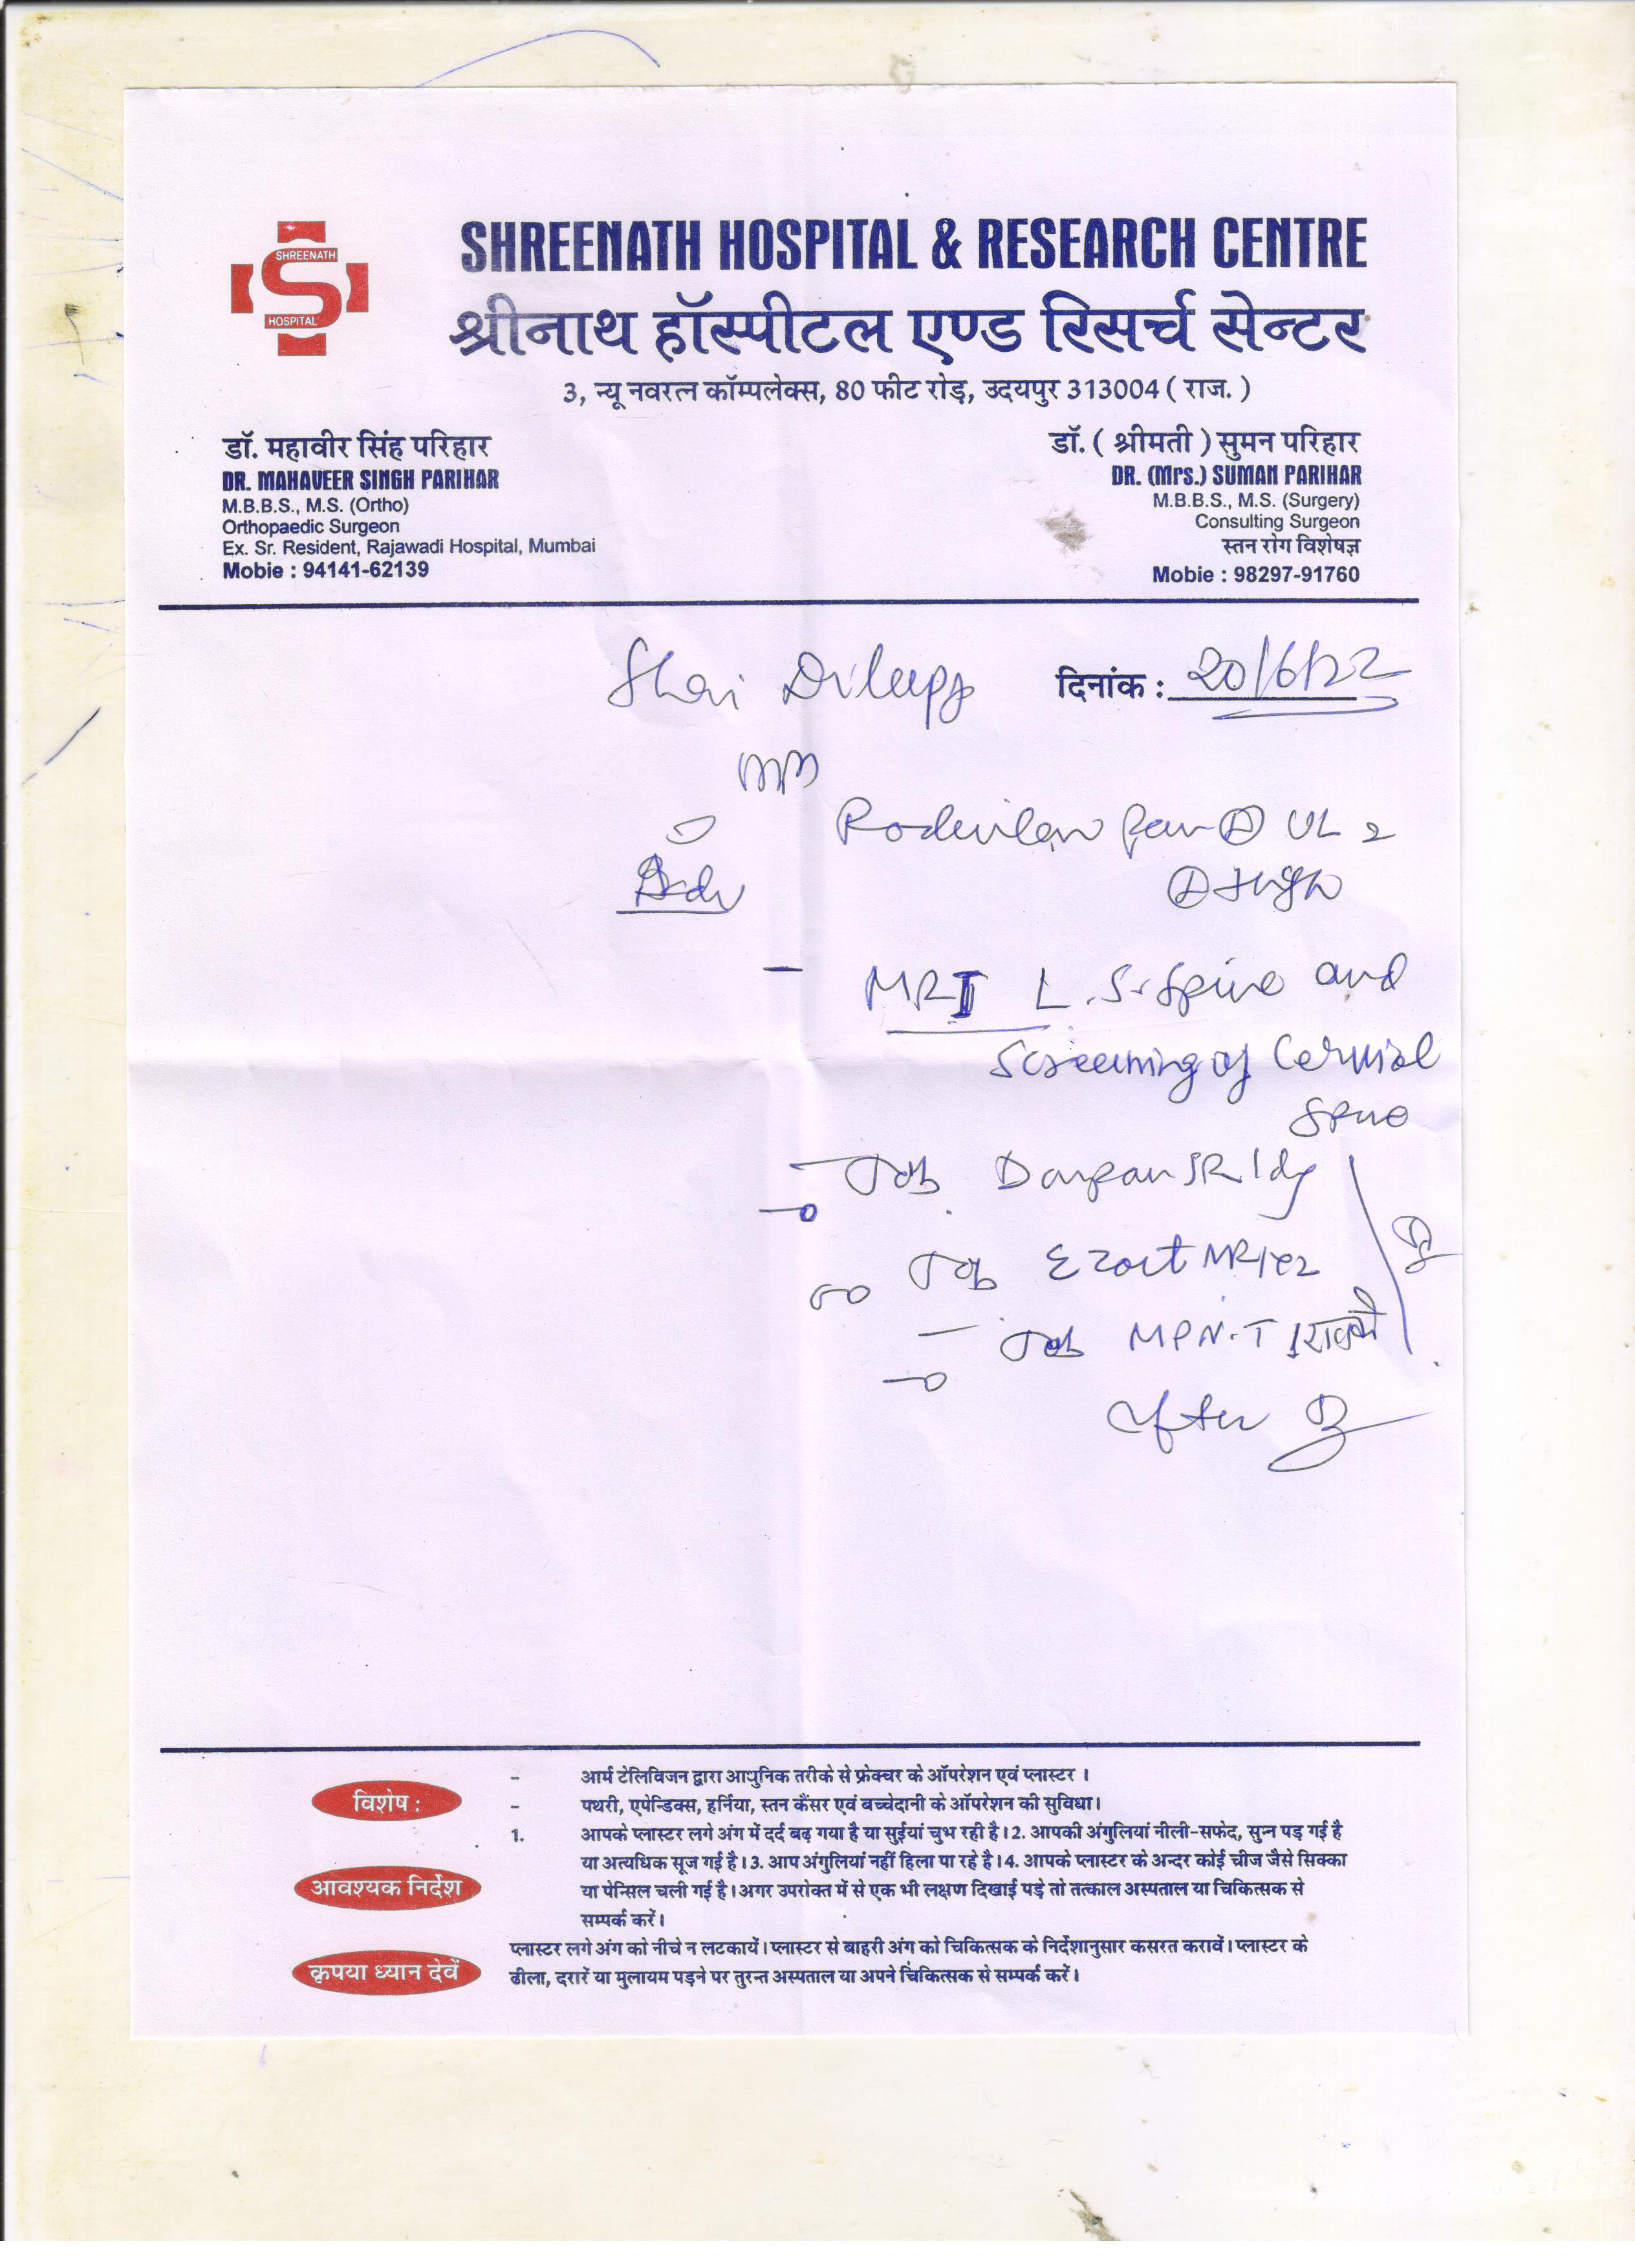 SHREENATH
HOSPITAL
SHREENATH HOSPITAL & RESEARCH CENTRE
श्रीनाथ हॉस्पीटल एण्ड रिसर्च सेन्टर
3, न्यू नवरत्न कॉम्पलेक्स, 80 फीट रोड़, उदयपुर 313004 ( राज. )
डॉ. महावीर सिंह परिहार
DR. MAHAVEER SINGH PARIHAR
M.B.B.S., M.S. (Ortho)
Orthopaedic Surgeon
Ex. Sr. Resident, Rajawadi Hospital, Mumbai
Mobie : 94141-62139
डॉ. ( श्रीमती ) सुमन परिहार
DR. (Mrs.) SUMAN PARIHAR
M.B.B.S., M.S. (Surgery)
Consulting Surgeon
स्तन रोग विशेषज्ञ
Mobie : 98297-91760
दिनांक : 20/6/22
UL
Adv
- MRI L.S. Spine and
Screening of Cervical
Spine
after
विशेष :
- आर्म टेलिविजन द्वारा आधुनिक तरीके से फ्रेक्चर के ऑपरेशन एवं प्लास्टर ।
- पथरी, एपेन्डिक्स, हर्निया, स्तन कैंसर एवं बच्चेदानी के ऑपरेशन की सुविधा।
आवश्यक निर्देश
1. आपके प्लास्टर लगे अंग में दर्द बढ़ गया है या सुईयां चुभ रही है। 2. आपकी अंगुलियां नीली-सफेद, सुन्न पड़ गई है
या अत्यधिक सूज गई है। 3. आप अंगुलियां नहीं हिला पा रहे है। 4. आपके प्लास्टर के अन्दर कोई चीज जैसे सिक्का
या पेन्सिल चली गई है। अगर उपरोक्त में से एक भी लक्षण दिखाई पड़े तो तत्काल अस्पताल या चिकित्सक से
सम्पर्क करें।
कृपया ध्यान देवें
प्लास्टर लगे अंग को नीचे न लटकायें। प्लास्टर से बाहरी अंग को चिकित्सक के निर्देशानुसार कसरत करावें। प्लास्टर के
ढीला, दरारें या मुलायम पड़ने पर तुरन्त अस्पताल या अपने चिकित्सक से सम्पर्क करें।